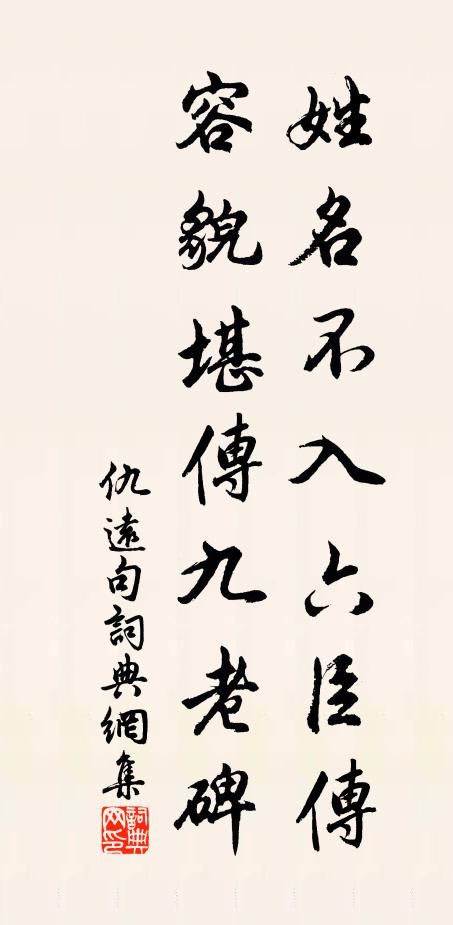 姓名不入六臣傳
容貌堪傳九老碑
仇遠句詞典網集
詞典网印